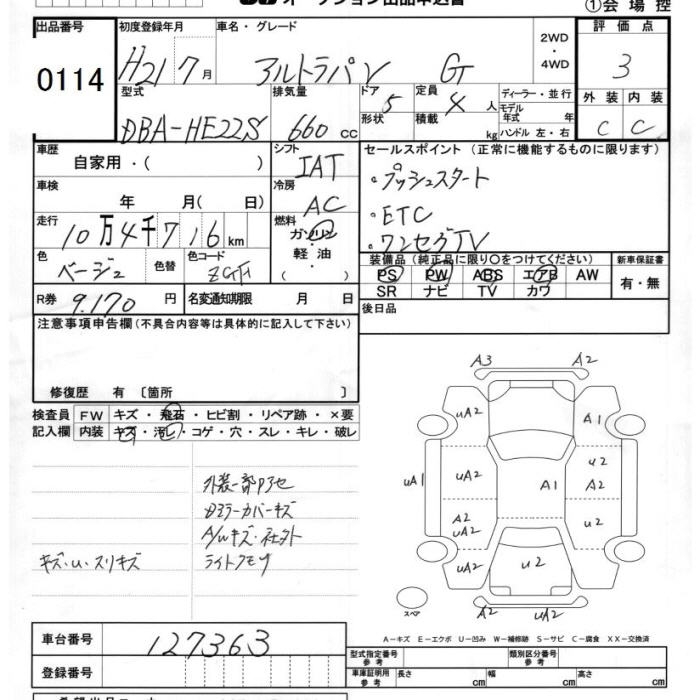 オークション出品申込書
①会場控
出品番号 初度登録年月 車名・グレード 2WD・4WD 評価点
0114 H21 7月 アルトラパン G 3
型式 排気量 ドア 定員 ディーラー・並行 外装 内装
DBA-HE22S 660cc 5 4人 モデル年式 年 C C
形状 積載 kg ハンドル 左・右
車歴 シフト セールスポイント (正常に機能するものに限ります)
自家用・( ) IAT ・プッシュスタート
車検 冷房
年 月(日) AC ・ETC
走行 燃料
10万4千716km ガソリン ・ワンセグTV
軽油
( )
色 色替 色コード 装備品(純正品に限り○をつけてください) 新車保証書
ベージュ PS PW ABS エアB AW 有・無
SR ナビ TV カワ
R券 9.170円 名変通知期限 月 日 後日品
注意事項申告欄(不具合内容等は具体的に記入して下さい)
修復歴 有 〔箇所 〕
検査員 FW キズ・飛石・ヒビ割・リペア跡・×要
記入欄 内装 キズ・汚レ・コゲ・穴・スレ・キレ・破レ
外装一部アセ
ミラーカバーキズ
A/Wキズ・社外
キズ・U・スリキズ ライトクモリ
A3 A2
UA2 A1
UA1 UA2 A1 U2 A2
A2 UA2 U2
UA2 U2 A2
スペア A2 UA2
A-キズ E-エクボ U-凹み W-補修跡 S-サビ C-腐食 XX-交換済
車台番号 127363
登録番号
型式指定番号 参考 類別区分番号 参考
車庫証明用 参考 長さ cm 幅 cm 高さ cm